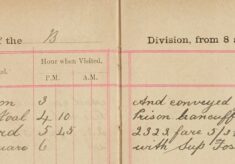 f the B Division, from 8 a
Hour when Visited.
el. P.M. A.M.
on 3 And conveyed
oal 4 10 Prison hancuff
rd 5 45 2323 fare 3/3
uare 6 with Sup Fos